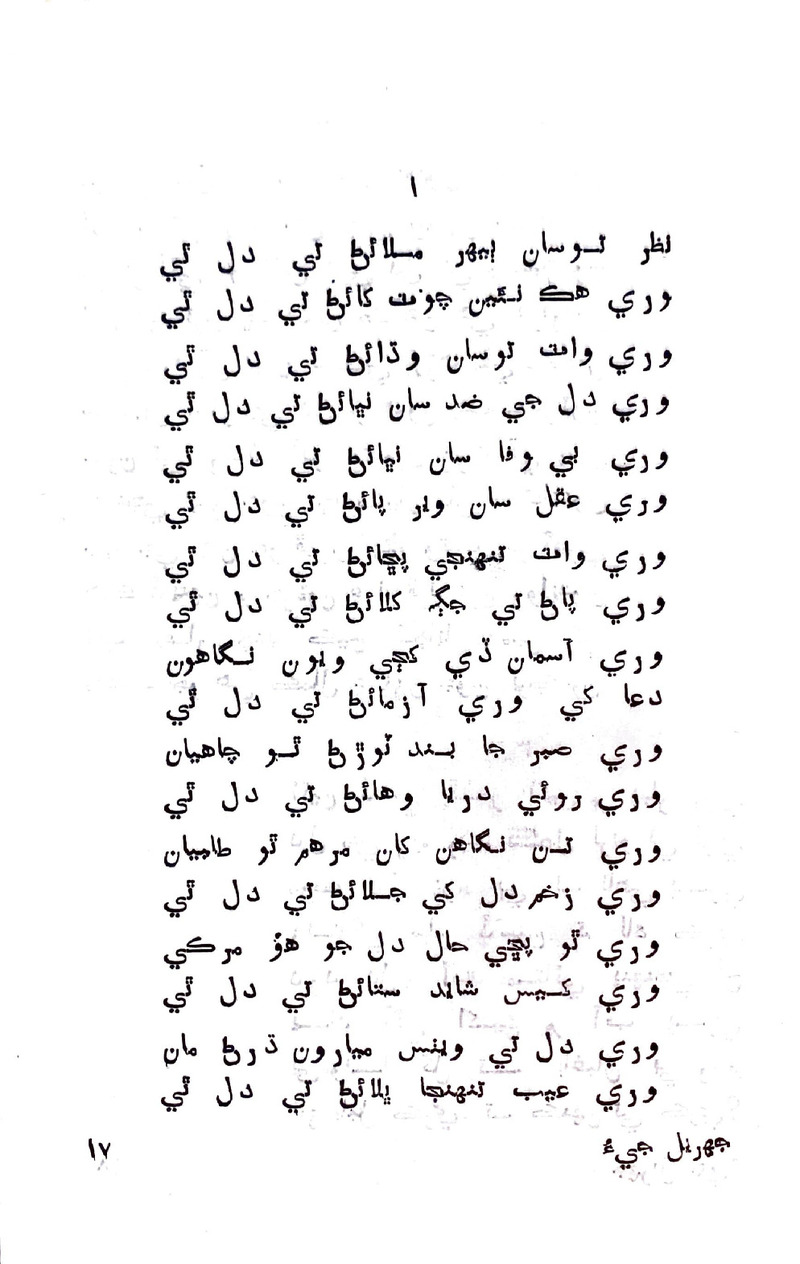 ١
نظر توسان ايهر ملائڻ تي دل ٿي
وري هڪ نئين چوٽ کائڻ تي دل ٿي
وري وات توسان وڌائڻ تي دل ٿي
وري دل جي ضد سان نڀائڻ تي دل ٿي
وري بي وفا سان نڀائڻ تي دل ٿي
وري عقل سان وير پائڻ تي دل ٿي
وري وات تنهنجي پڇائڻ تي دل ٿي
وري پاڻ تي جڳ کلائڻ تي دل ٿي
وري آسمان ڏي کڄي ويون نگاهون
دعا کي وري آزمائڻ تي دل ٿي
وري صبر جا بند ٽوڙڻ ٿو چاهيان
وري روئي دريا وهائڻ تي دل ٿي
وري تن نگاهن کان مرهم ٿو طلبيان
وري زخم دل کي جلائڻ تي دل ٿي
وري ٿو پڇي حال دل جو هؤ مرڪي
وري کيس شايد ستائڻ تي دل ٿي
وري دل تي ويٺس ميارون ڌرڻ مان
وري عيب تنهنجا ڀلائڻ تي دل ٿي
جهريل جيءُ
١٧